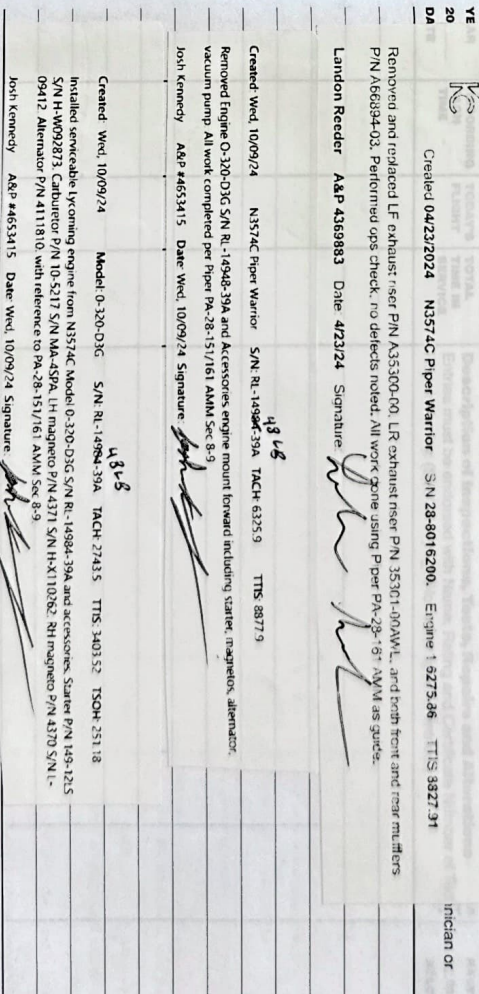 YE
20
DA
KC
Created 04/23/2024 N3574C Piper Warrior S-N 28-8016200. Engine 1 6275.86 TTIS 8827.91
Removed and replaced LF exhaust riser P/N A35300-00, LR exhaust riser P/N 35301-00AWL, and both front and rear mufflers
P/N A66894-03. Performed ops check, no defects noted. All work done using Piper PA-28-161 AMM as guide.
Landon Reeder A&P 4369883 Date: 4/23/24 Signature:
48 LB
Created: Wed, 10/09/24 N3574C Piper Warrior S/N: RL-14984-39A TACH: 6325.9 TTIS: 8877.9
Removed Engine O-320-D3G S/N RL-14948-39A and Accessories engine mount forward including starter, magnetos, alternator,
vacuum pump. All work completed per Piper PA-28-151/161 AMM Sec 8-9.
Josh Kennedy A&P #4653415 Date: Wed, 10/09/24 Signature:
48 LB
Created: Wed, 10/09/24 Model: 0-320-D3G S/N: RL-14984-39A TACH: 2743.5 TTIS: 3403.52 TSOH: 251.18
Installed serviceable Lycoming engine from N3574C Model 0-320-D3G S/N RL-14984-39A and accessories. Starter P/N 149-12LS
S/N H-W092873. Carburetor P/N 10-5217 S/N MA-4SPA. LH magneto P/N 4371 S/N H-X110262. RH magneto P/N 4370 S/N L-
09412. Alternator P/N 4111810. with reference to PA-28-151/161 AMM Sec 8-9.
Josh Kennedy A&P #4653415 Date: Wed, 10/09/24 Signature:
nician or